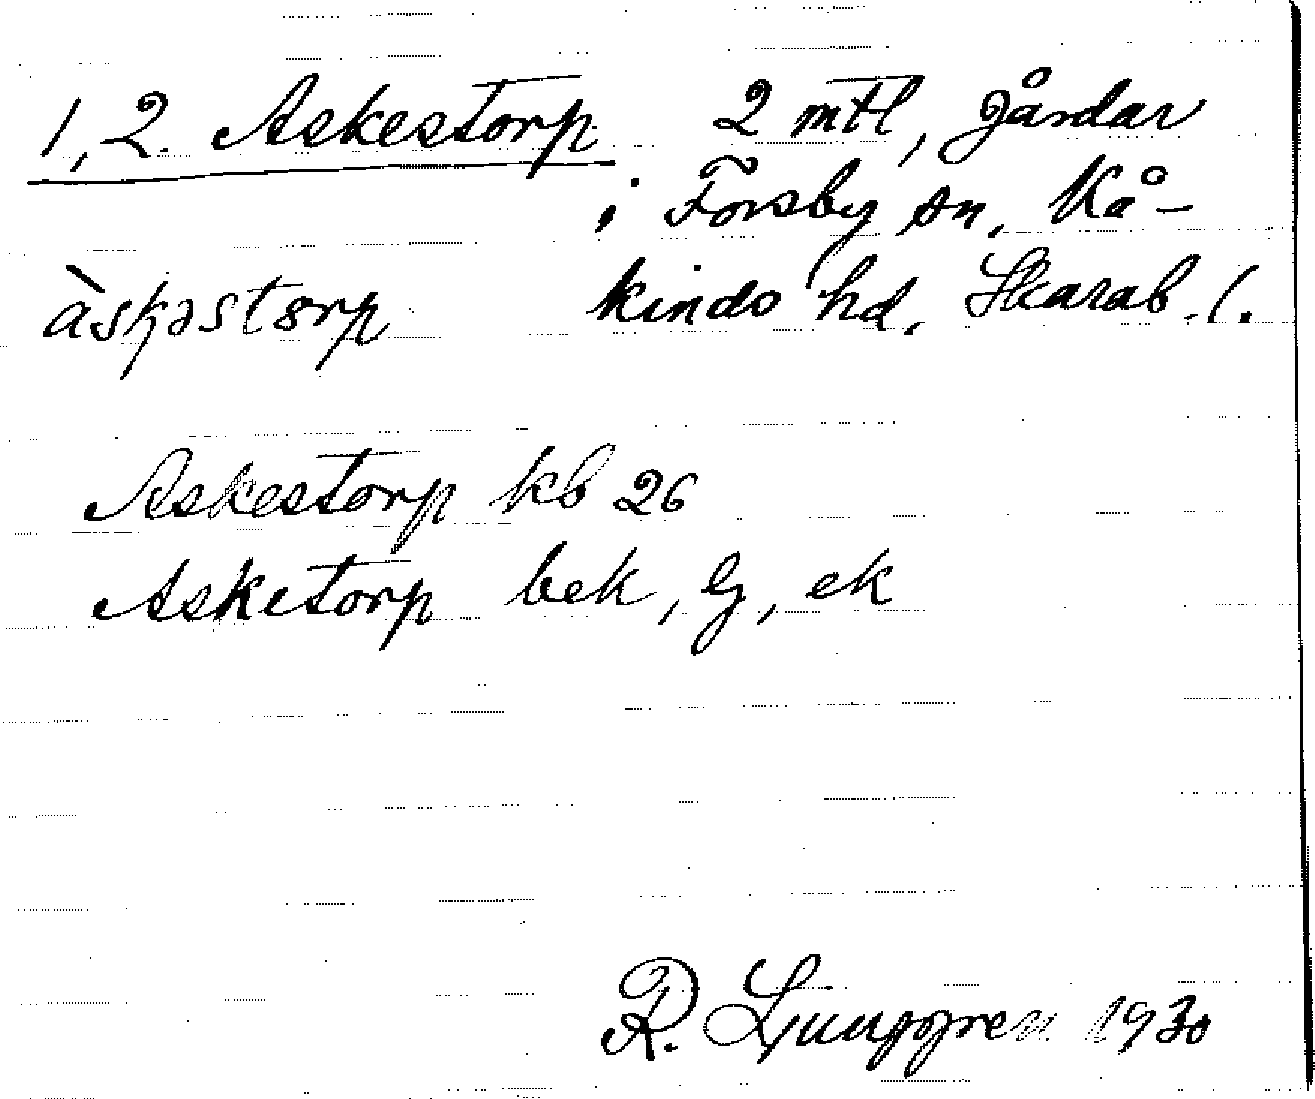 1, 2. Askestorp 2 mtl, gårdar
i Forsby sn, Kå-
àskəstɔrp kinds hd, Skarab. l.
Askestorp kb 26
Asketorp bek, Gj, ek
R. Ljunggren 1930